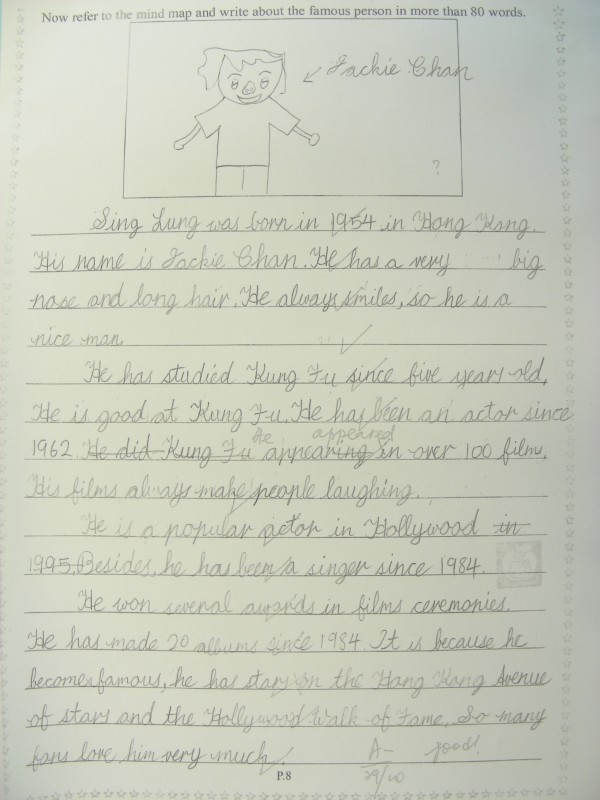 Now refer to the mind map and write about the famous person in more than 80 words.
Jackie Chan
?
Sing Lung was born in 1954 in Hong Kong.
His name is Jackie Chan. He has a very big
nose and long hair. He always smiles, so he is a
nice man.
He has studied Kung Fu since five years old.
He is good at Kung Fu. He has been an actor since
He appeared
1962. He did Kung Fu appearing in over 100 films.
His films always make people laughing.
He is a popular actor in Hollywood in
1995. Besides, he has been a singer since 1984.
He won several awards in films ceremonies.
He has made 20 albums since 1984. It is because he
becomes famous, he has stars on the Hong Kong Avenue
of stars and the Hollywood Walk of Fame. So many
fans love him very much.
A- good!
P.8